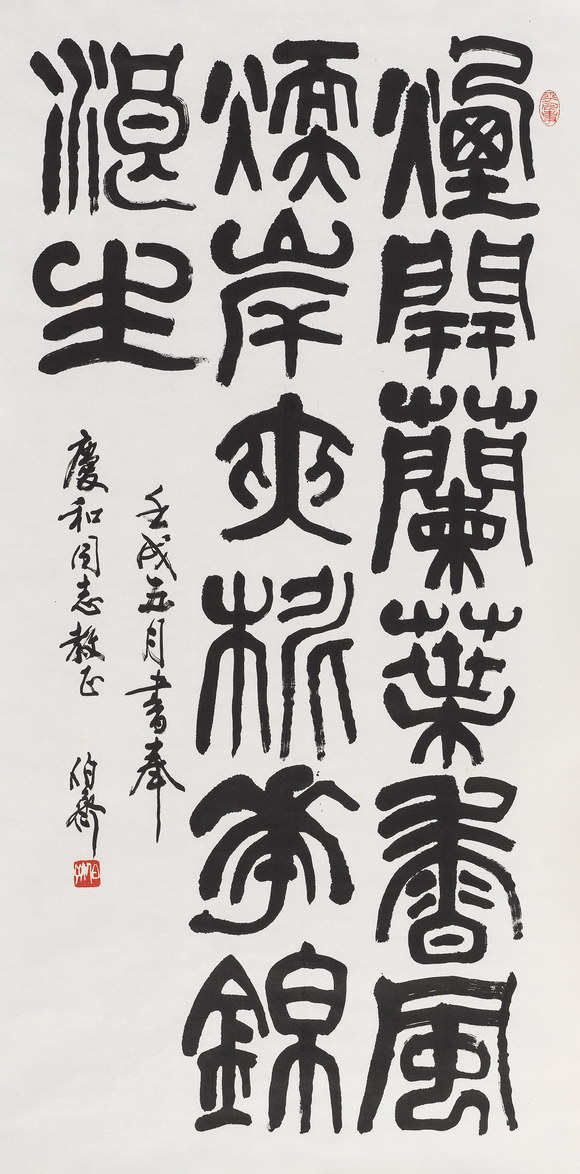 煙開蘭葉香風
煖岸夾桃華錦
浪生
壬戌五月書奉
慶和同志教正 伯齊